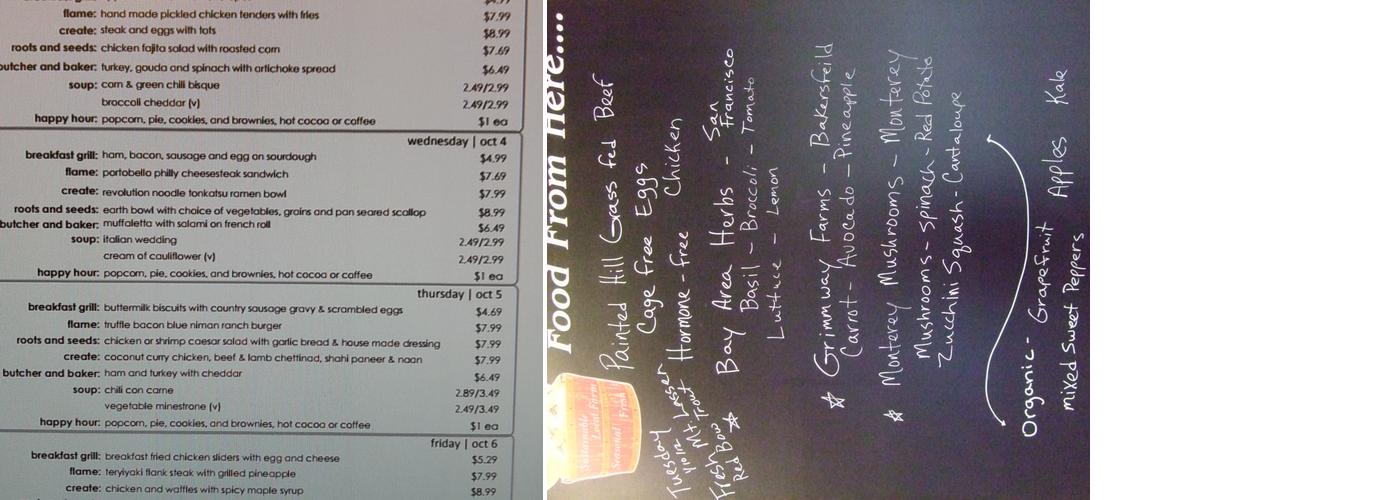 flame: hand made pickled chicken tenders with fries $7.99
create: steak and eggs with tots $8.99
roots and seeds: chicken fajita salad with roasted corn $7.69
butcher and baker: turkey, gouda and spinach with artichoke spread $6.49
soup: corn & green chili bisque 2.49/2.99
broccoli cheddar (v) 2.49/2.99
happy hour: popcorn, pie, cookies, and brownies, hot cocoa or coffee $1 ea
wednesday | oct 4
breakfast grill: ham, bacon, sausage and egg on sourdough $4.99
flame: portobello philly cheesesteak sandwich $7.69
create: revolution noodle tonkatsu ramen bowl $7.99
roots and seeds: earth bowl with choice of vegetables, grains and pan seared scallop $8.99
butcher and baker: muffaletta with salami on french roll $6.49
soup: italian wedding 2.49/2.99
cream of cauliflower (v) 2.49/2.99
happy hour: popcorn, pie, cookies, and brownies, hot cocoa or coffee $1 ea
thursday | oct 5
breakfast grill: buttermilk biscuits with country sausage gravy & scrambled eggs $4.69
flame: truffle bacon blue niman ranch burger $7.99
roots and seeds: chicken or shrimp caesar salad with garlic bread & house made dressing $7.99
create: coconut curry chicken, beef & lamb chettinad, shahi paneer & naan $7.99
butcher and baker: ham and turkey with cheddar $6.49
soup: chili con carne 2.89/3.49
vegetable minestrone (v) 2.49/3.49
happy hour: popcorn, pie, cookies, and brownies, hot cocoa or coffee $1 ea
friday | oct 6
breakfast grill: breakfast fried chicken sliders with egg and cheese $5.29
flame: teriyaki flank steak with grilled pineapple $7.99
create: chicken and waffles with spicy maple syrup $8.99
Food From Here....
Sustainable
Local Farm
Seasonal Fresh
Painted Hill Grass fed Beef
Cage free Eggs
Hormone-free Chicken
Tuesday
Mt. Lassen
Trout
Fresh
Red Bow
Bay Area Herbs - San Francisco
Basil - Broccoli - Tomato
Luttuce - Lemon
Grimmway Farms - Bakersfeild
Carrot - Avocado - Pineapple
Monterey Mushrooms - Monterey
Mushrooms - Spinach - Red Potato
Zucchini Squash - Cantaloupe
Organic - Grapefruit Apples Kale
mixed Sweet Peppers